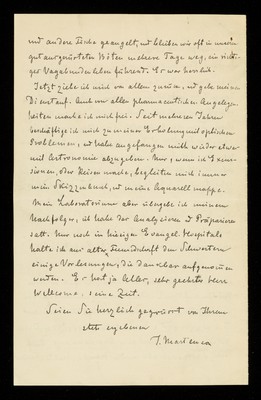 und andere Fische geangelt, und bleiben wir oft in unsern
gut ausgerüsteten Böten mehrere Tage weg, ein richti-
ger Vagabundenleben führend. Es war herrlich.
Jetzt ziehe ich mich von allem zurück, und gebe meinen
Dienst auf. Auch von allen pharmaceutischen Angelegen-
heiten mache ich mich frei. Seit mehreren Jahren
beschäftige ich mich zu meiner Erholung mit optischen
Problemen, und habe angefangen mich wieder etwas
mit Astronomie abzugeben. Nur, wenn ich Excur-
sionen, oder Reisen mache, begleiten mich immer
mein Skizzenbuch, und meine Aquarellmappe.
Mein Laboratorium aber übergebe ich meinem
Nachfolger, ich habe das Analysieren und Präparieren
satt. Nur noch im hiesigen Evangel. Hospitale
halte ich aus alter Freundschaft den Schwestern
einige Vorlesungen, die dankbar aufgenommen
werden. Es hat ja Alles, sehr geehrter Herr
Wellcome, seine Zeit.
Seien Sie herzlich gegrüsst von Ihrem
stets ergebenen